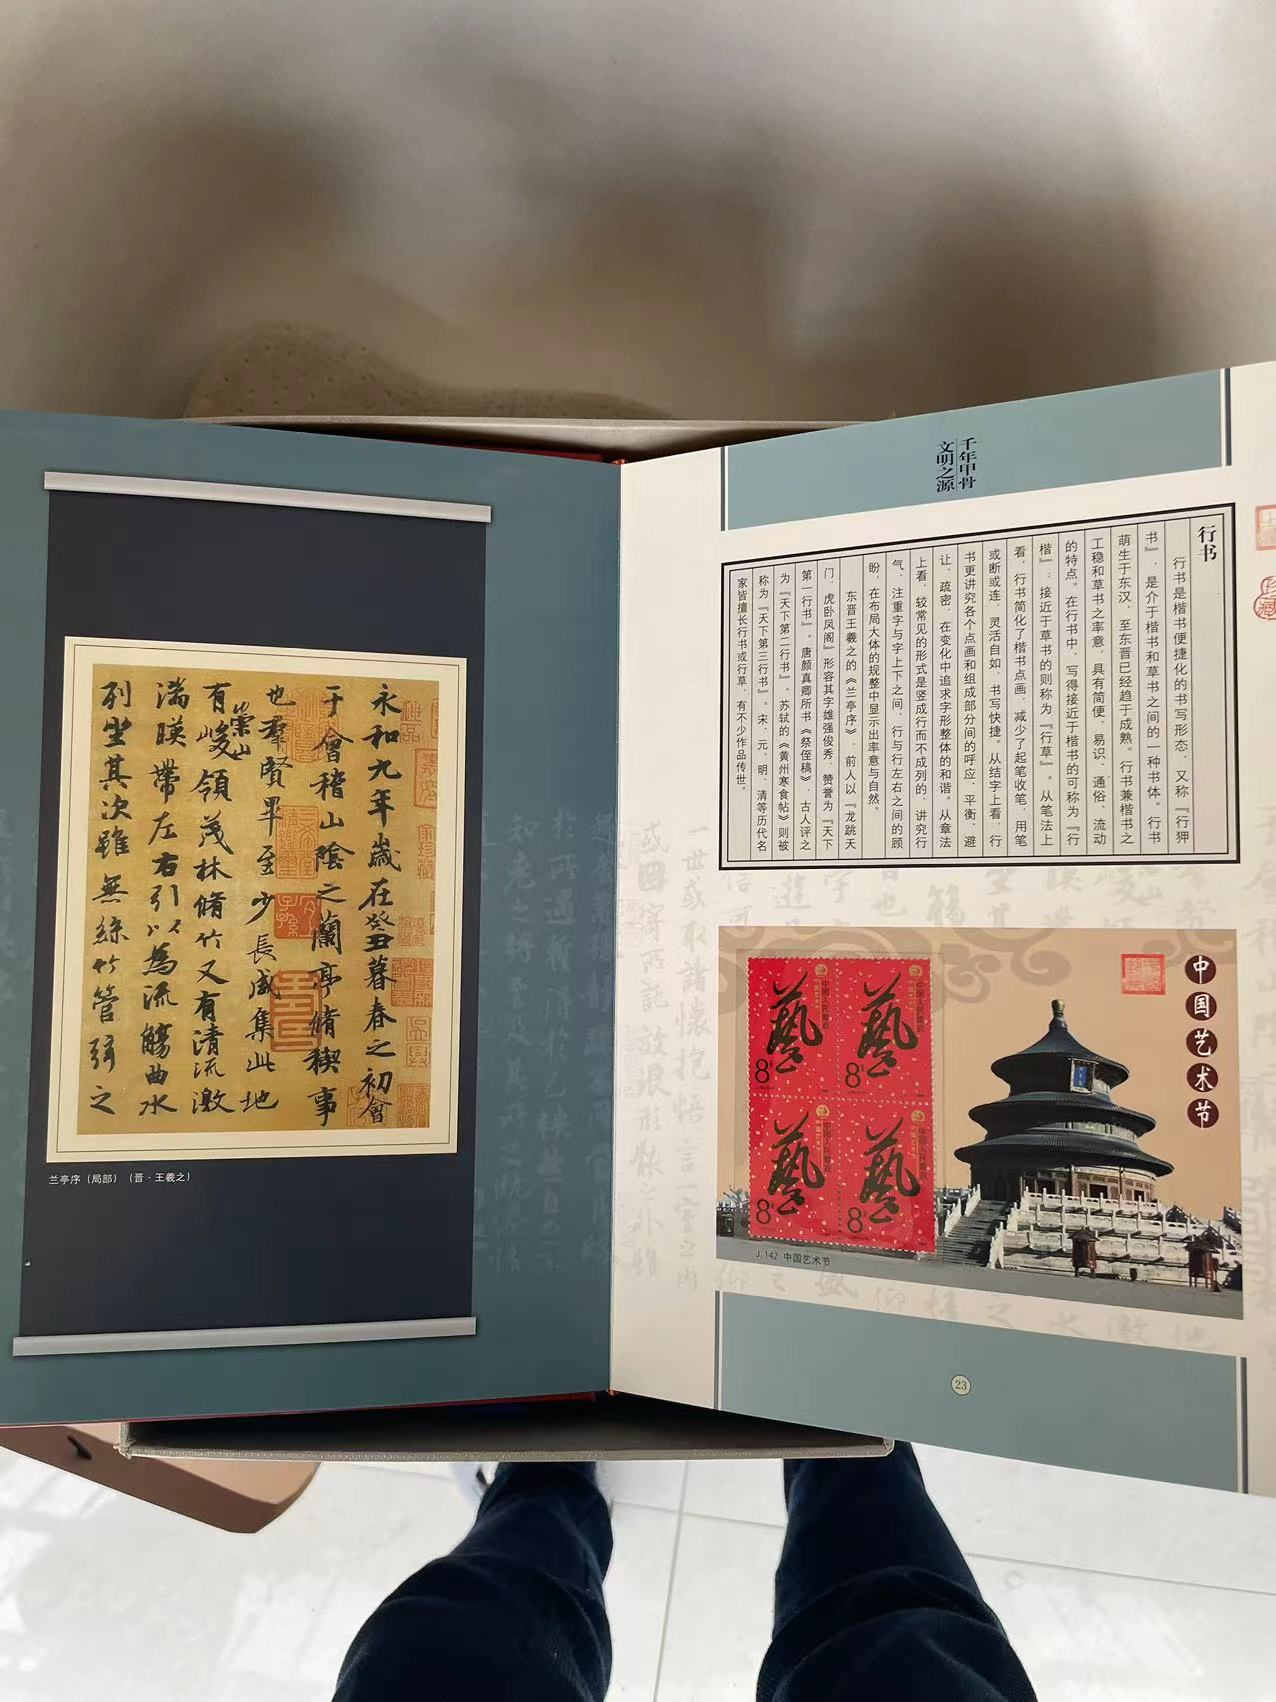 永和九年歲在癸丑暮春之初會
于會稽山陰之蘭亭脩稧事
也羣賢畢至少長咸集此地
有崇山峻領茂林脩竹又有清流激
湍暎帶左右引以為流觴曲水
列坐其次雖無絲竹管弦之
兰亭序（局部）（晋·王羲之）
千年甲骨
文明之源
行书
行书是楷书便捷化的书写形态，又称『行狎
书』，是介于楷书和草书之间的一种书体。行书
萌生于东汉，至东晋已经趋于成熟。行书兼楷书之
工稳和草书之率意，具有简便、易识、通俗、流动
的特点。在行书中，写得接近于楷书的可称为『行
楷』；接近于草书的则称为『行草』。从笔法上
看，行书简化了楷书点画，减少了起笔收笔，用笔
或断或连，灵活自如，书写快捷。从结字上看，行
书更讲究各个点画和组成部分间的呼应、平衡、避
让、疏密，在变化中追求字形整体的和谐。从章法
上看，较常见的形式是竖成行而不成列的，讲究行
气，注重字与字上下之间、行与行左右之间的顾
盼，在布局大体的规整中显示出率意与自然。
东晋王羲之的《兰亭序》，前人以『龙跳天
门，虎卧凤阁』形容其字雄强俊秀，赞誉为『天下
第一行书』。唐颜真卿所书《祭侄稿》，古人评之
为『天下第二行书』。苏轼的《黄州寒食帖》则被
称为『天下第三行书』。宋、元、明、清等历代名
家皆擅长行书或行草，有不少作品传世。
中国艺术节
藝
8
藝
8
藝
8
藝
8
J.142 中国艺术节
23